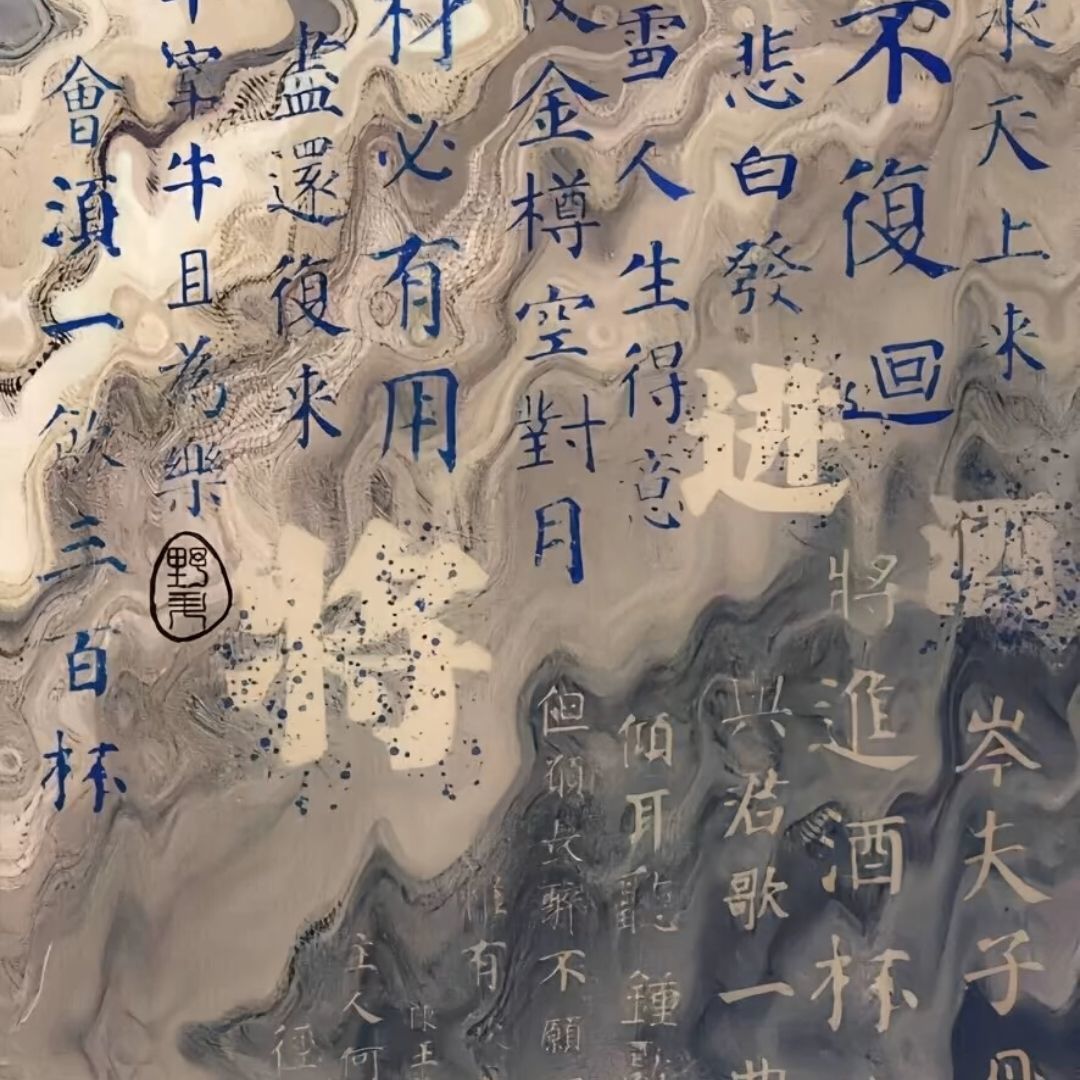 水天上来
不復迴
悲白發
雪人生得意
金樽空對月
材必有用
盡還復来
宰牛且為樂
會須一飲三百杯
进
酒
将
野
岑夫子丹
將進酒杯
與君歌一曲
傾耳聽鐘
但願長醉不願
惟有
陳王
主人何
徑